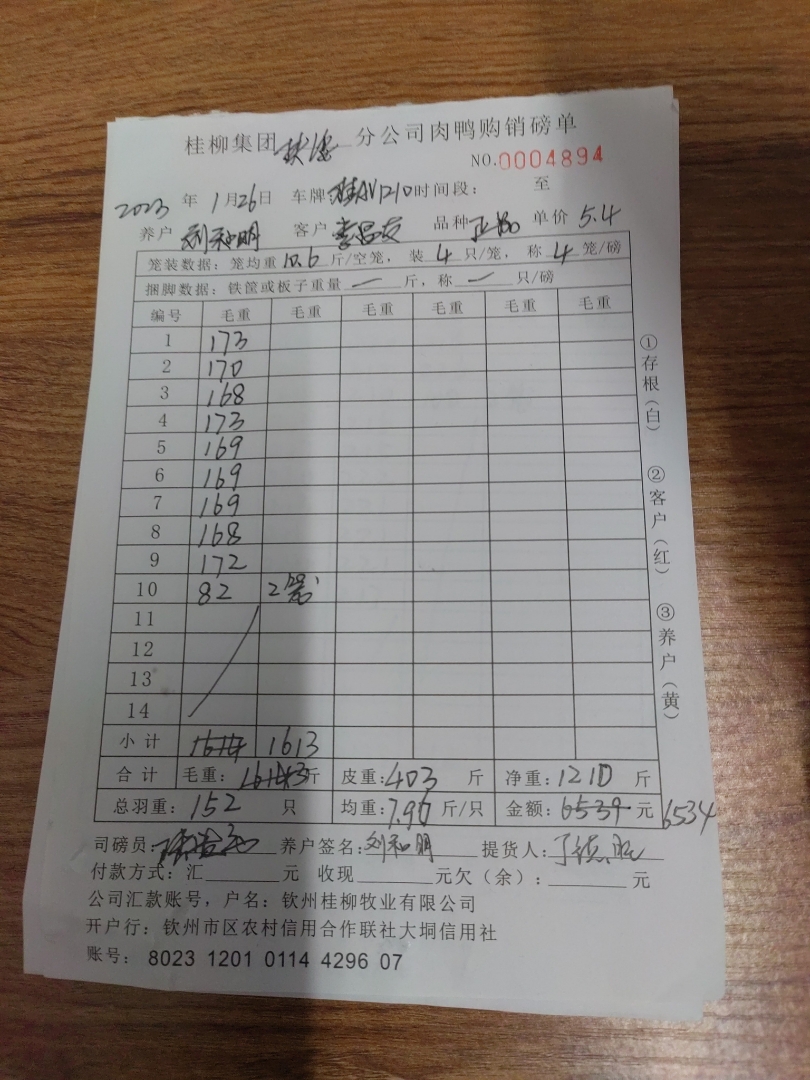 桂柳集团 分公司肉鸭购销磅单
NO.0004894
2023 年 1月26日 车牌 桂AV1210 时间段: 至
养户 刘和明 客户 李昌友 品种 正品 单价 5.4
笼装数据:笼均重 10.6 斤/空笼,装 4 只/笼,称 4 笼/磅
捆脚数据:铁筐或板子重量 一 斤,称 一 只/磅
编号 毛重 毛重 毛重 毛重 毛重 毛重
1 173
2 170
3 168
4 173
5 169
6 169
7 169
8 168
9 172
10 82 2笼
11
12
13
14
小计 1614 1613
合计 毛重: 1613斤 皮重:403 斤 净重:1210 斤
总羽重:152 只 均重:7.96 斤/只 金额:6539 元 6534
司磅员: 养户签名:刘和明 提货人:
付款方式:汇 元 收现 元欠(余): 元
公司汇款账号,户名:钦州桂柳牧业有限公司
开户行:钦州市区农村信用合作联社大垌信用社
账号: 8023 1201 0114 4296 07
①存根(白)
②客户(红)
③养户(黄)